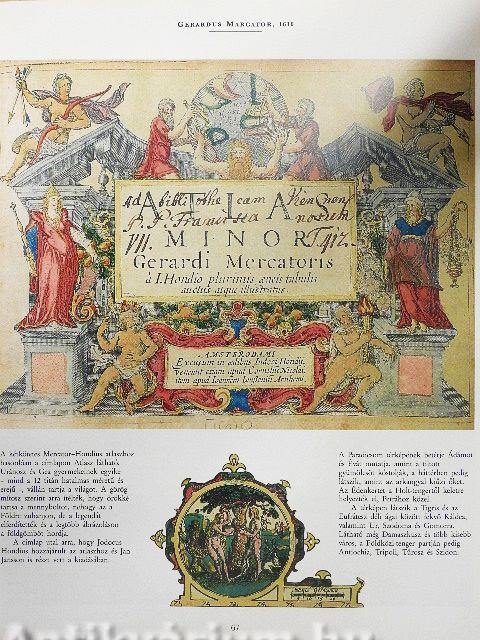 GERARDUS MARCATOR, 1610
Ad bibliothecam Viennensem
ATLAS
P. P. Francisca norum
MINOR
Gerardi Mercatoris
à I. Hondio plurimis æneis tabulis
auctus atque illustratus.
AMSTERODAMI
Excusum in ædibus Iudoci Hondii,
veneunt etiam apud Corneliũ Nicolai,
item apud Ioannem Ianssonium Arnhemi.
A kétkötetes Mercator–Hondius atlaszhoz
hasonlóan a címlapon Atlasz látható.
Uránosz és Gea gyermekeinek egyike
– mind a 12 titán hatalmas méretű és
erejű –, vállán tartja a világot. A görög
mítosz szerint arra ítélték, hogy örökké
tartsa a mennyboltot, nehogy az a
Földre zuhanjon, de a legendát
elferdítették és a legtöbb ábrázoláson
a földgömböt hordja.
A címlap utal arra, hogy Jodocus
Hondius hozzájárult az atlaszhoz és Jan
Jansson is részt vett a kiadásában.
A Paradicsom térképének betétje Ádámot
és Évát mutatja, amint a tiltott
gyümölcsöt kóstolják, a háttérben pedig
látszik, amint az arkangyal kiűzi őket.
Az Édenkertet a Holt-tengertől keletre
helyezték el, Petrához közel.
A térkép látszik a Tigris és az
Eufrátesz déli ágai között fekvő Káldea,
valamint Ur, Szodoma és Gomorra.
Látható még Damaszkusz és több kisebb
város, a Földközi-tenger partján pedig
Antiochia, Tripoli, Türosz és Szidon.
67